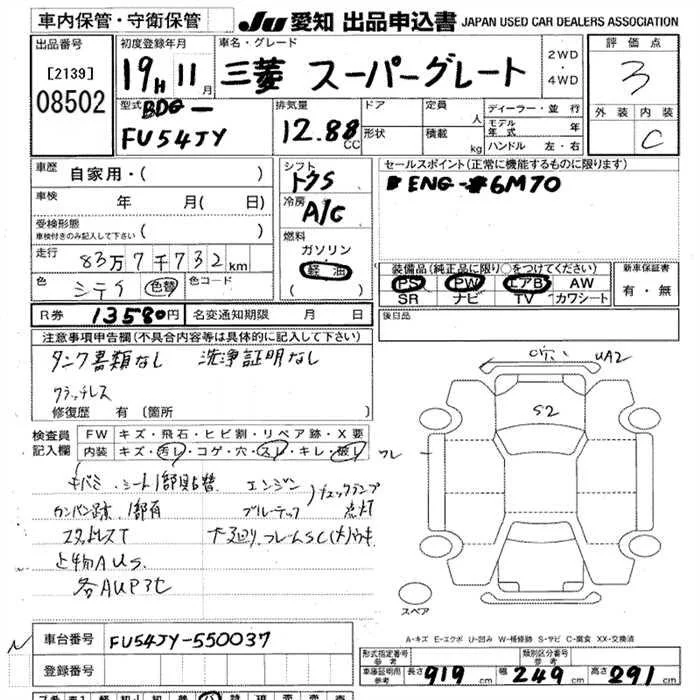 車内保管・守衛保管
JU 愛知 出品申込書 JAPAN USED CAR DEALERS ASSOCIATION
出品番号
[2139]
08502
初度登録年月
19H 11月
車名・グレード
三菱 スーパーグレート
2WD
・
4WD
評価点
3
外装 内装
C
型式
BDG-
FU54JY
排気量
12.88
CC
ドア
形状
定員
人
積載
kg
ディーラー・並行
モデル年式 年
ハンドル 左・右
車歴
自家用・( )
車検
年 月( 日)
受検形態
車検付きのみ記入して下さい ( )
走行
83万7千732km
色
シテイ 色替
色コード
シフト
冷房
A/C
燃料
ガソリン
軽油
( )
セールスポイント(正常に機能するものに限ります)
ENG-#6M70
装備品(純正品に限り○をつけてください)
PS PW エアB AW
SR ナビ TV カワシート
新車保証書
有・無
R券 13580円 名変通知期限 月 日
後日品
注意事項申告欄(不具合内容等は具体的に記入して下さい)
タンク書類なし 洗浄証明なし
クラッチレス
修復歴 有 (箇所
検査員
記入欄
FW キズ・飛石・ヒビ割・リペア跡・X要
内装 キズ・汚レ・コゲ・穴・スレ・キレ・破レ
キバミ・シート1部貝占替 エンジン
カンバン跡 1部有 ブルーテック
チェックランプ
点灯
スタットレスT 下廻り、フレームSC(大)ウキ
上物AUS
各AUP3ヒ
穴 UA2
S2
フレ
スペア
A-キズ E-エクボ U-凹み W-補修跡 S-サビ C-腐食 XX-交換済
車台番号 FU54JY-550037
登録番号
形式指定番号
参考
類別区分番号
参考
車庫証明用
参考
長さ 919cm 幅 249cm 高さ 291cm